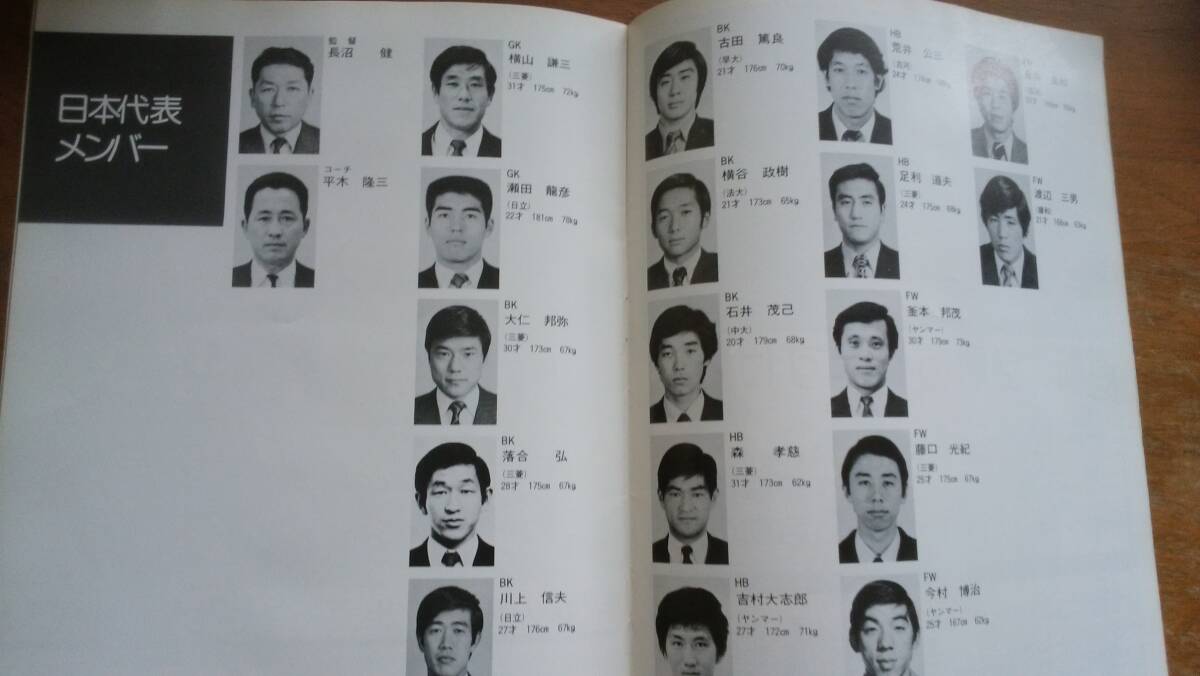 日本代表
メンバー
監督
長沼 健
コーチ
平木 隆三
GK
横山 謙三
(三菱)
31才 175cm 72kg
GK
瀬田 龍彦
(日立)
22才 181cm 78kg
BK
大仁 邦弥
(三菱)
30才 173cm 67kg
BK
落合 弘
(三菱)
28才 175cm 67kg
BK
川上 信夫
(日立)
27才 176cm 67kg
BK
古田 篤良
(早大)
21才 176cm 70kg
BK
横谷 政樹
(法大)
21才 173cm 65kg
BK
石井 茂己
(中大)
20才 179cm 68kg
HB
森 孝慈
(三菱)
31才 173cm 62kg
HB
吉村大志郎
(ヤンマー)
27才 172cm 71kg
HB
荒井 公三
(古河)
24才
HB
足利 道夫
(三菱)
24才 175cm 68kg
FW
釜本 邦茂
(ヤンマー)
30才 179cm 73kg
FW
藤口 光紀
(三菱)
25才 175cm 67kg
FW
今村 博治
(ヤンマー)
25才 167cm 62kg
FW
FW
渡辺 三男
21才 166cm 63kg